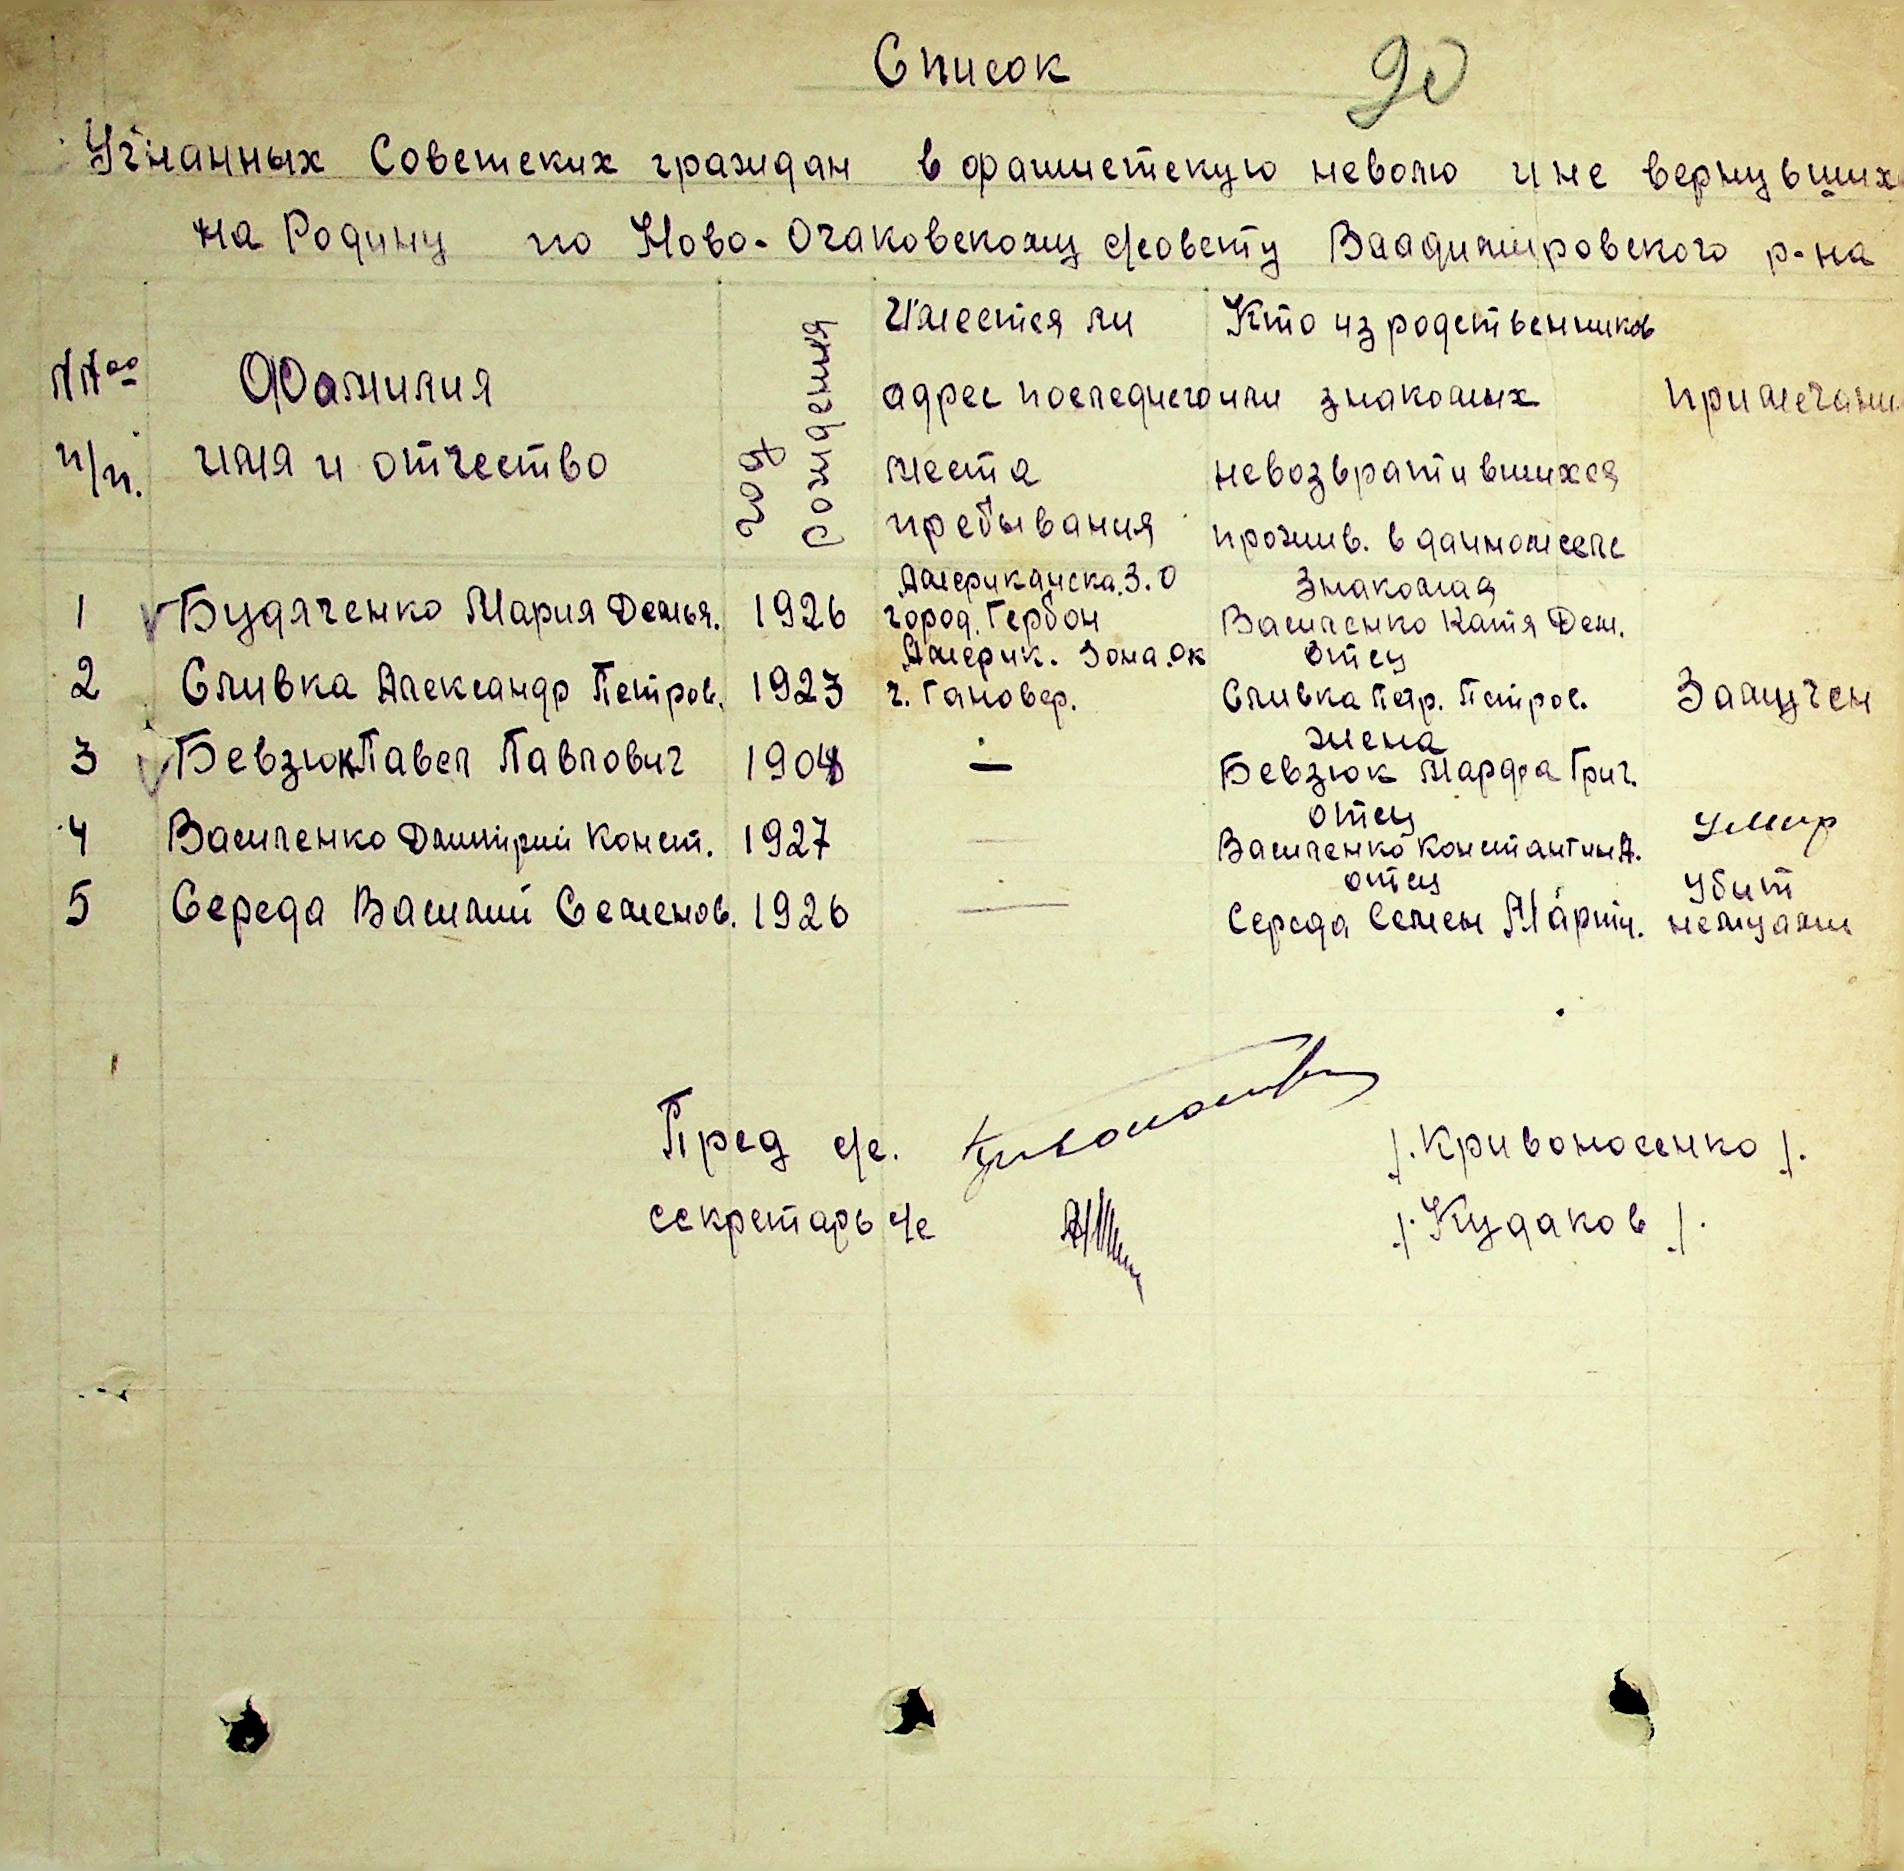 Список
90
Угнанных Советских граждан в фашистскую неволю и не вернувших
на Родину по Ново-Очаковскому с/совету Владимировского р-на
№№ п/п. Фамилия имя и отчество год рождения Имеется ли адрес последнего места пребывания Кто из родственников или знакомых невозвратившихся прожив. в данном селе Примечани
1 Будяченко Мария Демья. 1926 Американска.З.О город. Гербон Знакомая Васильченко Катя Дем.
2 Сливка Александр Петров. 1923 Америк. Зона.Ок г. Гановер. Отец Сливка Петр. Петров. Замучен
3 Бевзюк Павел Павлович 1908 — жена Бевзюк Марфа Григ.
4 Васильченко Дмитрий Конст. 1927 — отец Васильченко Константин А. умир
5 Середа Василий Семенов. 1926 — отец Середа Семен Март. Убит немцами
Пред с/с. /.Кривоносенко/.
секретарь с/с /.Кудаков/.